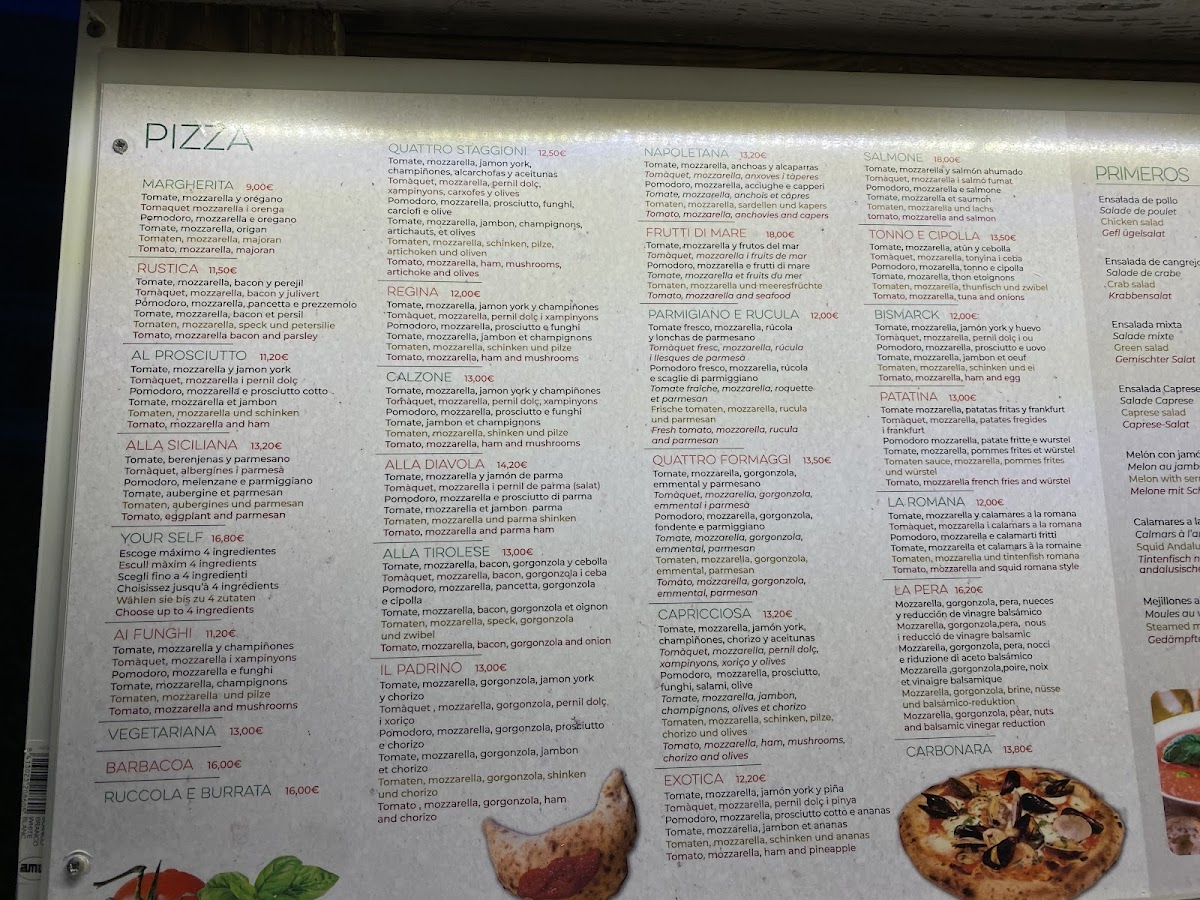 PIZZA
MARGHERITA 9,00€
Tomate, mozzarella y orégano
Tomaquet mozzarella i orenga
Pomodoro, mozzarella e oregano
Tomate, mozzarella, origan
Tomaten, mozzarella, majoran
Tomato, mozzarella, majoran
RUSTICA 11,50€
Tomate, mozzarella, bacon y perejil
Tomàquet, mozzarella, bacon y julivert
Pomodoro, mozzarella, pancetta e prezzemolo
Tomate, mozzarella, bacon et persil
Tomaten, mozzarella, speck und petersilie
Tomato, mozzarella bacon and parsley
AL PROSCIUTTO 11,20€
Tomate, mozzarella y jamon york
Tomàquet, mozzarella i pernil dolç
Pomodoro, mozzarella e prosciutto cotto
Tomate, mozzarella et jambon
Tomaten, mozzarella und schinken
Tomato, mozzarella and ham
ALLA SICILIANA 13,20€
Tomate, berenjenas y parmesano
Tomàquet, albergínes i parmesà
Pomodoro, melenzane e parmiggiano
Tomate, aubergine et parmesan
Tomaten, aubergines und parmesan
Tomato, eggplant and parmesan
YOUR SELF 16,80€
Escoge máximo 4 ingredientes
Escull màxim 4 ingredients
Scegli fino a 4 ingredienti
Choisissez jusqu'à 4 ingrédients
Wählen sie bis zu 4 zutaten
Choose up to 4 ingredients
AI FUNGHI 11,20€
Tomate, mozzarella y champiñones
Tomàquet, mozzarella i xampinyons
Pomodoro, mozzarella e funghi
Tomate, mozzarella, champignons
Tomaten, mozzarella und pilze
Tomato, mozzarella and mushrooms
VEGETARIANA 13,00€
BARBACOA 16,00€
RUCCOLA E BURRATA 16,00€
QUATTRO STAGGIONI 12,50€
Tomate, mozzarella, jamon york,
champiñones, alcarchofas y aceitunas
Tomàquet, mozzarella, pernil dolç,
xampinyons, carxofes y olives
Pomodoro, mozzarella, prosciutto, funghi,
carciofi e olive
Tomate, mozzarella, jambon, champignons,
artichauts, et olives
Tomaten, mozzarella, schinken, pilze,
artichoken und oliven
Tomato, mozzarella, ham, mushrooms,
artichoke and olives
REGINA 12,00€
Tomate, mozzarella, jamon york y champiñones
Tomàquet, mozzarella, pernil dolç i xampinyons
Pomodoro, mozzarella, prosciutto e funghi
Tomate, mozzarella, jambon et champignons
Tomaten, mozzarella, schinken und pilze
Tomato, mozzarella, ham and mushrooms
CALZONE 13,00€
Tomate, mozzarella, jamon york y champiñones
Tomàquet, mozzarella, pernil dolç, xampinyons
Pomodoro, mozzarella, prosciutto e funghi
Tomate, jambon et champignons
Tomaten, mozzarella, shinken und pilze
Tomato, mozzarella, ham and mushrooms
ALLA DIAVOLA 14,20€
Tomate, mozzarella y jamón de parma
Tomàquet, mozzarella i pernil de parma (salat)
Pomodoro, mozzarella e prosciutto di parma
Tomate, mozzarella et jambon parma
Tomaten, mozzarella und parma shinken
Tomato, mozzarella and parma ham
ALLA TIROLESE 13,00€
Tomate, mozzarella, bacon, gorgonzola y cebolla
Tomàquet, mozzarella, bacon, gorgonzola i ceba
Pomodoro, mozzarella, pancetta, gorgonzola
e cipolla
Tomate, mozzarella, bacon, gorgonzola et oignon
Tomaten, mozzarella, speck, gorgonzola
und zwibel
Tomato, mozzarella, bacon, gorgonzola and onion
IL PADRINO 13,00€
Tomate, mozzarella, gorgonzola, jamon york
y chorizo
Tomàquet , mozzarella, gorgonzola, pernil dolç
i xoriço
Pomodoro, mozzarella, gorgonzola, prosciutto
e chorizo
Tomate, mozzarella, gorgonzola, jambon
et chorizo
Tomaten, mozzarella, gorgonzola, shinken
und chorizo
Tomato , mozzarella, gorgonzola, ham
and chorizo
NAPOLETANA 13,20€
Tomate, mozzarella, anchoas y alcaparras
Tomàquet, mozzarella, anxoves i tàperes
Pomodoro, mozzarella, acciughe e capperi
Tomate, mozzarella, anchois et câpres
Tomaten, mozzarella, sardellen und kapers
Tomato, mozzarella, anchovies and capers
FRUTTI DI MARE 18,00€
Tomate, mozzarella y frutos del mar
Tomàquet, mozzarella i fruits de mar
Pomodoro, mozzarella e frutti di mare
Tomate, mozzarella et fruits du mer
Tomaten, mozzarella und meeresfrüchte
Tomato, mozzarella and seafood
PARMIGIANO E RUCULA 12,00€
Tomate fresco, mozzarella, rúcola
y lonchas de parmesano
Tomàquet fresc, mozzarella, rúcula
i llesques de parmesà
Pomodoro fresco, mozzarella, rúcola
e scaglie di parmiggiano
Tomate fraîche, mozzarella, roquette
et parmesan
Frische tomaten, mozzarella, rucula
und parmesan
Fresh tomato, mozzarella, rucula
and parmesan
QUATTRO FORMAGGI 13,50€
Tomate, mozzarella, gorgonzola,
emmental y parmesano
Tomàquet, mozzarella, gorgonzola,
emmental i parmesà
Pomodoro, mozzarella, gorgonzola,
fondente e parmiggiano
Tomate, mozzarella, gorgonzola,
emmental, parmesan
Tomaten, mozzarella, gorgonzola,
emmental, parmesan
Tomato, mozzarella, gorgonzola,
emmental, parmesan
CAPRICCIOSA 13,20€
Tomate, mozzarella, jamón york,
champiñones, chorizo y aceitunas
Tomàquet, mozzarella, pernil dolç,
xampinyons, xoriço y olives
Pomodoro, mozzarella, prosciutto,
funghi, salami, olive
Tomate, mozzarella, jambon,
champignons, olives et chorizo
Tomaten, mozzarella, schinken, pilze,
chorizo und olives
Tomato, mozzarella, ham, mushrooms,
chorizo and olives
EXOTICA 12,20€
Tomate, mozzarella, jamón york y piña
Tomàquet, mozzarella, pernil dolç i pinya
Pomodoro, mozzarella, prosciutto cotto e ananas
Tomate, mozzarella, jambon et ananas
Tomaten, mozzarella, schinken und ananas
Tomato, mozzarella, ham and pineapple
SALMONE 18,00€
Tomate, mozzarella y salmón ahumado
Tomàquet, mozzarella i salmó fumat
Pomodoro, mozzarella e salmone
Tomate, mozzarella et saumon
Tomaten, mozzarella und lachs
tomato, mozzarella and salmon
TONNO E CIPOLLA 13,50€
Tomate, mozzarella, atún y cebolla
Tomàquet, mozzarella, tonyina i ceba
Pomodoro, mozarella, tonno e cipolla
Tomate, mozarella, thon etoignons
Tomaten, mozzarella, thunfisch und zwibel
Tomato, mozzarella, tuna and onions
BISMARCK 12,00€
Tomate, mozzarella, jamón york y huevo
Tomàquet, mozzarella, pernil dolç i ou
Pomodoro, mozzarella, prosciutto e uovo
Tomate, mozzarella, jambon et oeuf
Tomaten, mozzarella, schinken und ei
Tomato, mozzarella, ham and egg
PATATINA 13,00€
Tomate mozzarella, patatas fritas y frankfurt
Tomàquet, mozzarella, patates fregides
i frankfurt
Pomodoro mozzarella, patate fritte e wurstel
Tomate, mozzarella, pommes frites et würstel
Tomaten sauce, mozzarella, pommes frites
und würstel
Tomato, mozzarella french fries and würstel
LA ROMANA 12,00€
Tomate, mozzarella y calamares a la romana
Tomàquet, mozzarella i calamars a la romana
Pomodoro, mozzarella e calamarti fritti
Tomate, mozzarella et calamars à la romaine
Tomaten, mozzarella und tintenfish romana
Tomato, mozzarella and squid romana style
LA PERA 16,20€
Mozzarella, gorgonzola, pera, nueces
y reducción de vinagre balsámico
Mozzarella, gorgonzola,pera, nous
i reducció de vinagre balsamic
Mozzarella, gorgonzola, pera, nocci
e riduzione di aceto balsámico
Mozzarella ,gorgonzola,poire, noix
et vinaigre balsamique
Mozzarella, gorgonzola, brine, nüsse
und balsámico-reduktion
Mozzarella, gorgonzola, péar, nuts
and balsamic vinegar reduction
CARBONARA 13,80€
PRIMEROS
Ensalada de pollo
Salade de poulet
Chicken salad
Gefl ügelsalat
Ensalada de cangrejo
Salade de crabe
Crab salad
Krabbensalat
Ensalada mixta
Salade mixte
Green salad
Gemischter Salat
Ensalada Caprese
Salade Caprese
Caprese salad
Caprese-Salat
Melón con jamó
Melon au jamb
Melon with serr
Melone mit Sc
Calamares a la
Calmars à l'a
Squid Andalu
Tintenfisch n
andalusische
Mejillones a
Moules au v
Steamed m
Gedämpfte